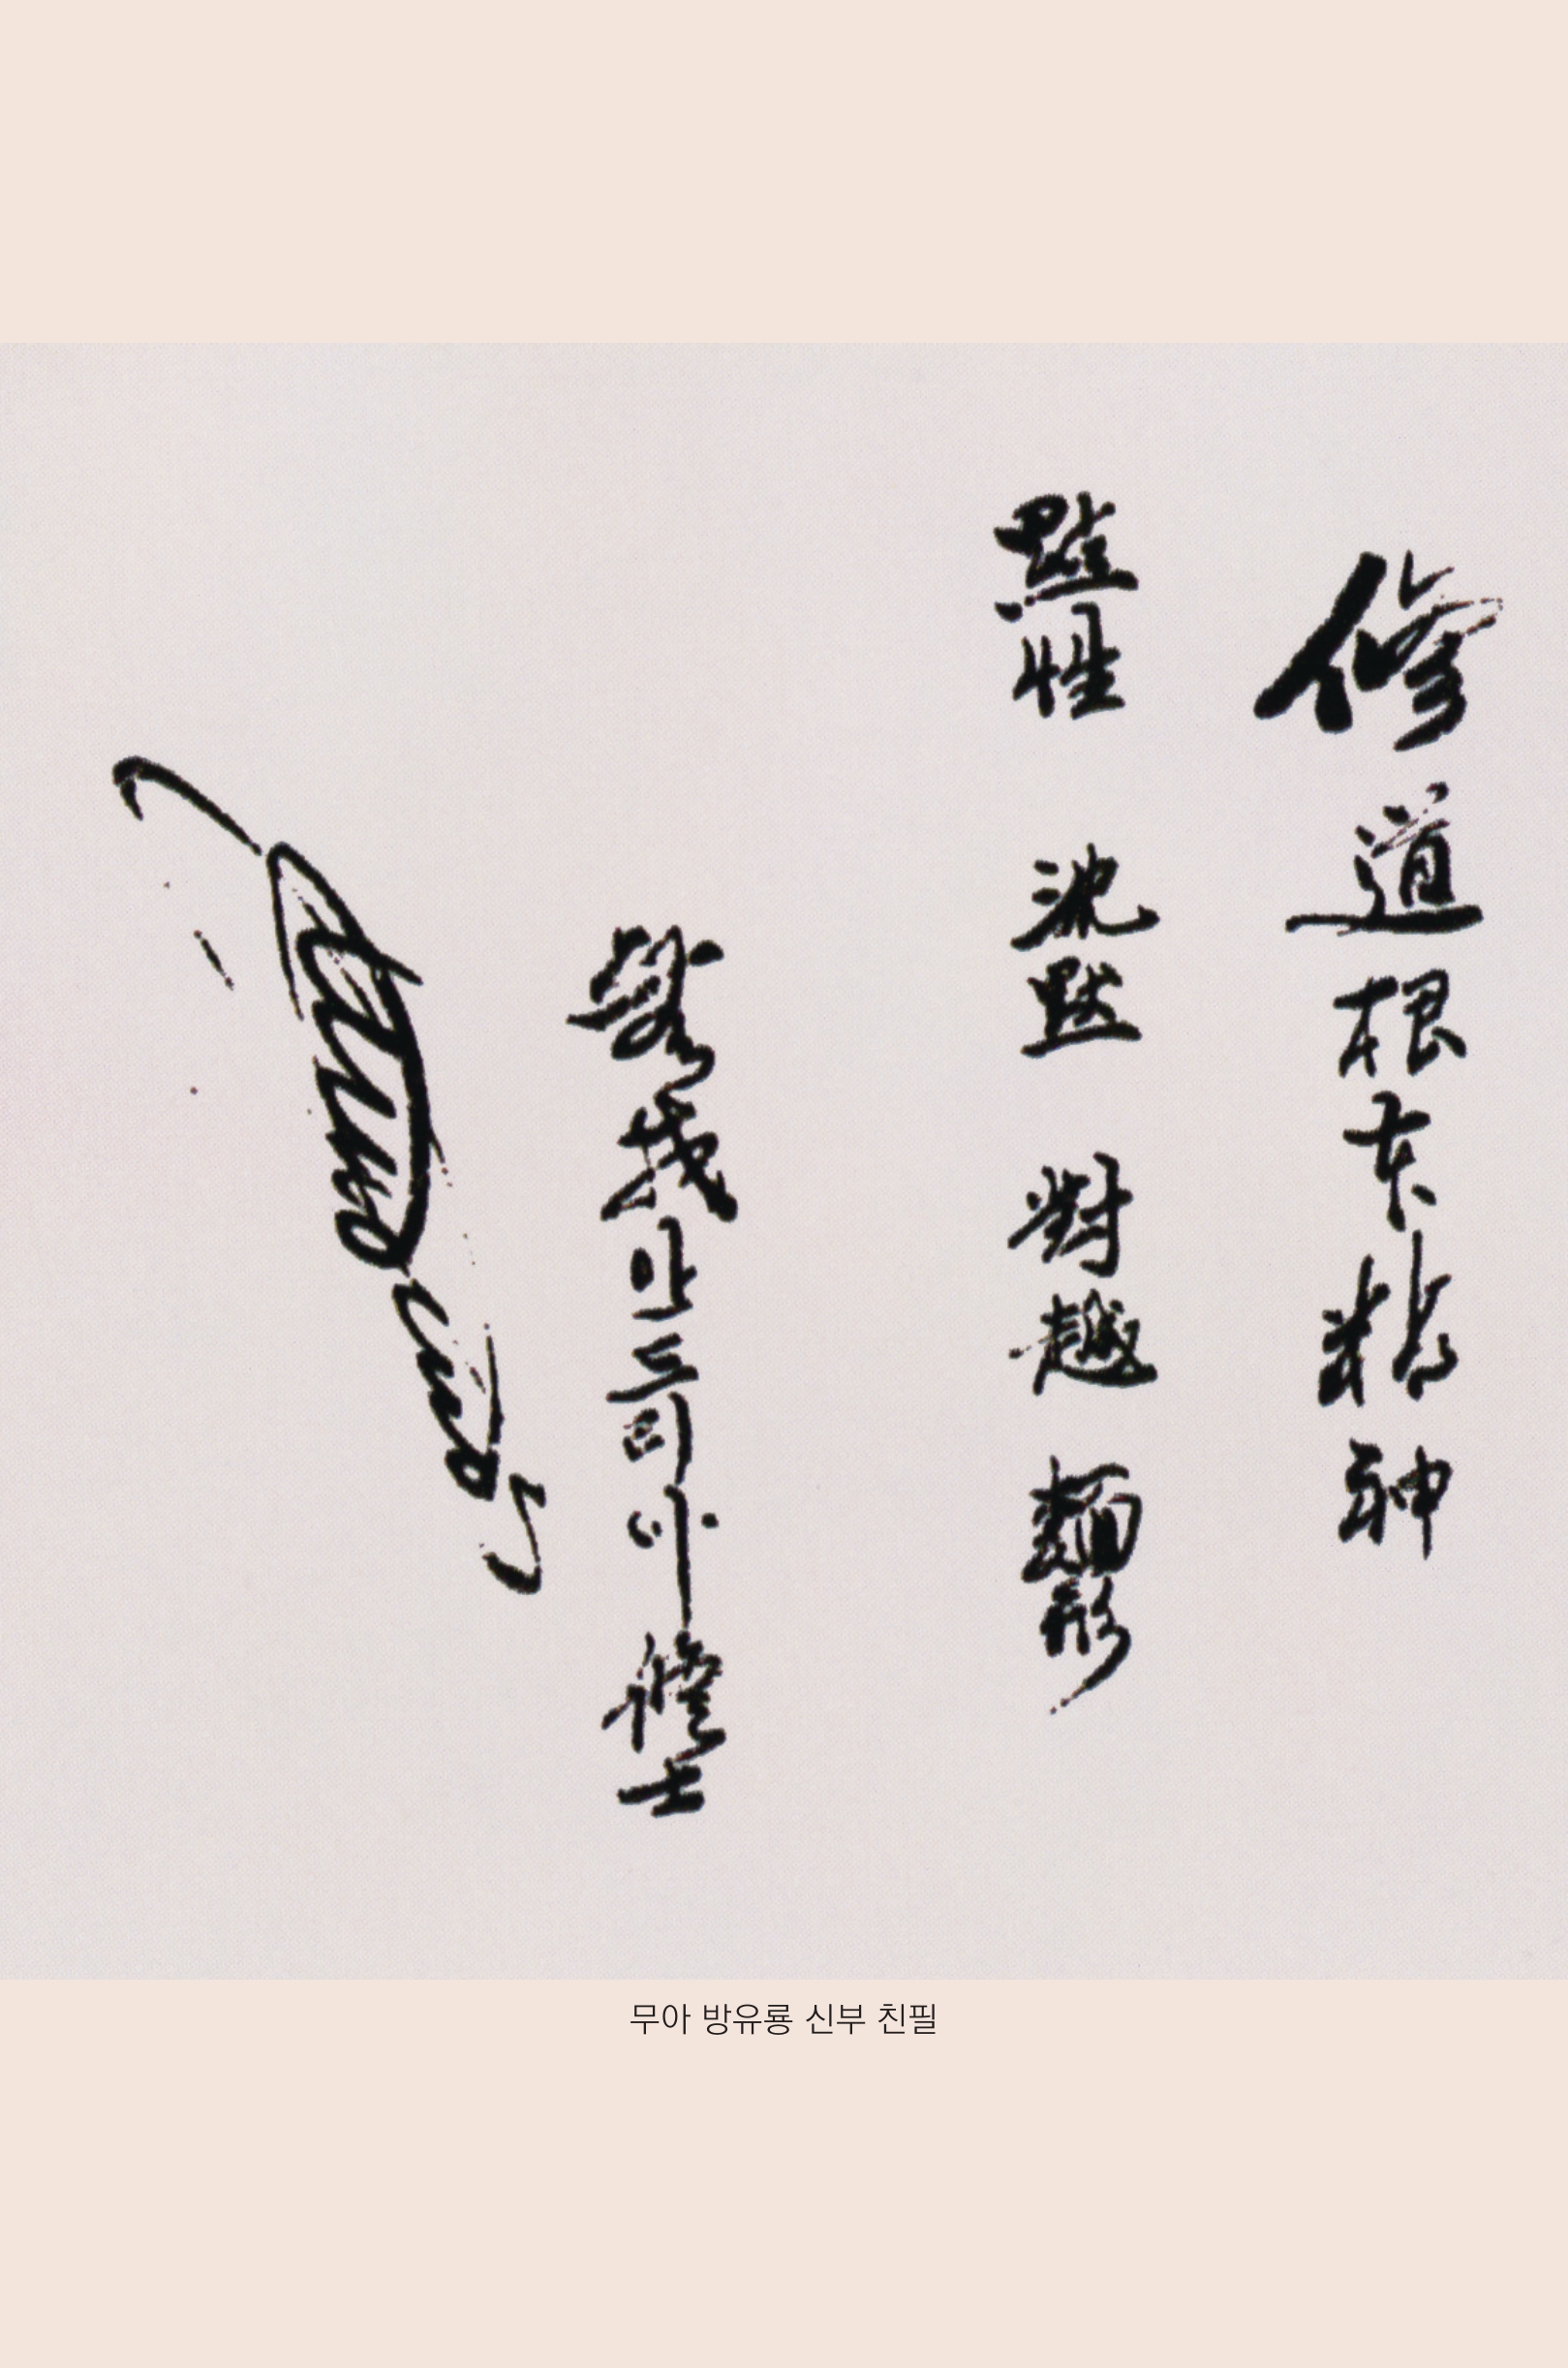 修道根本精神
點性 沈黙 對越 麵形
無我 안드리아 修士
무아 방유룡 신부 친필